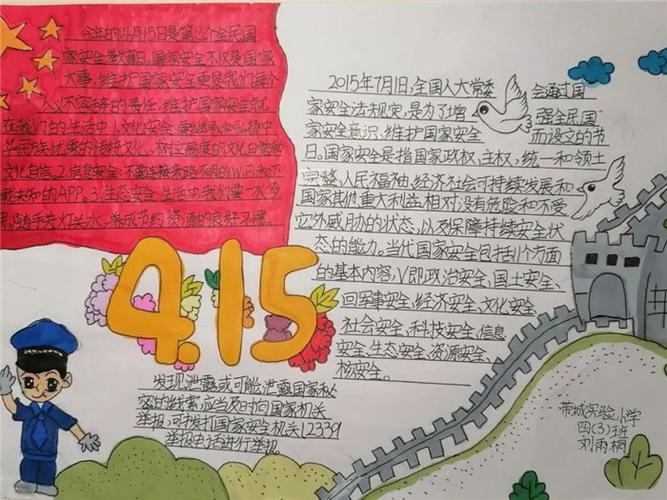 今年的4月15日是第七个全民国
家安全教育日,国家安全不仅是国家
大事,维护国家安全更是我们每个
人义不容辞的责任,维护国家安全就
在我们的生活中1.文化安全,要继承和弘扬中
华民族优秀的传统文化,树立高度的文化自觉和
文化自信。2.信息安全:不要连接来路不明的WiFi和下
载未知的APP。3.生态安全:生活中我们要一水多
用,随手关灯关水,养成节约资源的良好习惯。
2015年7月1日,全国人大常委会通过国
家安全法规定,是为了增强全民国
家安全意识,维护国家安全而设立的节
日。国家安全是指国家政权、主权、统一和领土
完整、人民福祉、经济社会可持续发展和
国家其他重大利益相对没有危险和不受
内外威胁的状态,以及保障持续安全状
态的能力。当代国家安全包括11个方面
的基本内容,即政治安全、国土安全、
军事安全、经济安全、文化安全、
社会安全、科技安全、信息
安全、生态安全、资源安全、
核安全。
4.15
发现泄露或可能泄露国家秘
密的线索,应当及时向国家机关
举报,可拨打国家安全机关12339
举报电话进行举报。
带城实验小学
四(3)班
刘雨桐